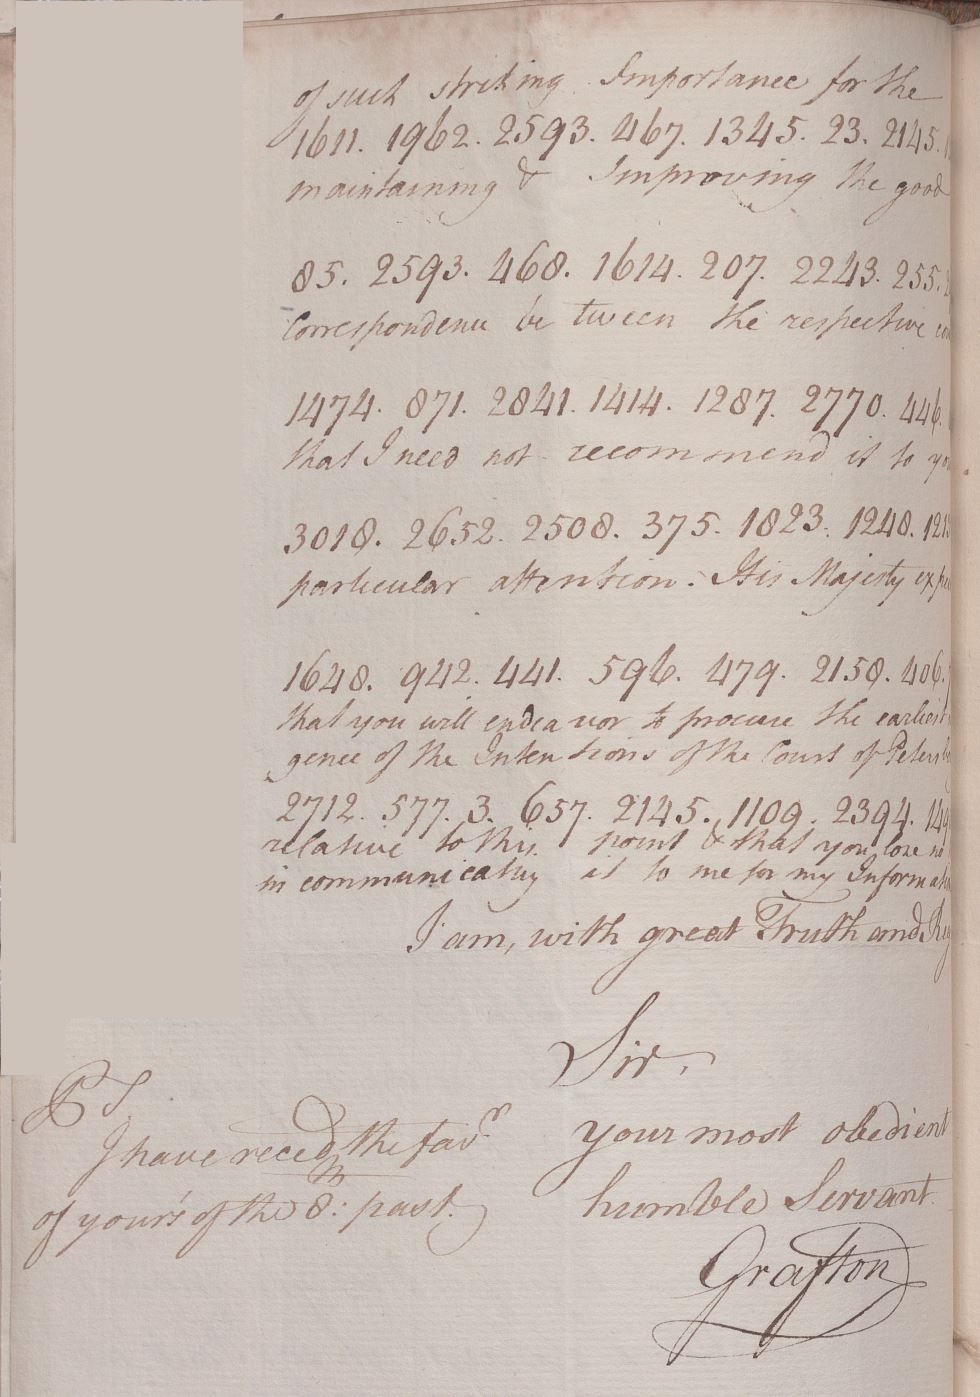 of such striking Importance for the
1611. 1962. 2593. 467. 1345. 23. 2145.
maintaining & Improving the good
85. 2593. 468. 1614. 207. 2243. 255.
Correspondence be tween the respective
1474. 871. 2841. 1414. 1287. 2770. 446.
that I need not recommend it to
3018. 2652. 2508. 375. 1823. 1248.
particular attention. His Majesty
1648. 942. 441. 596. 479. 2158. 406.
that you will endea vor to procure the earliest
gence of the Inten tions of the Court of
2712. 577. 3. 657. 2145. 1109. 2394.
relative to this point & that you lose no
in communicating it to me for my
I am, with great Truth and
Sir,
your most obedient
humble Servant.
Grafton
PS
I have receed the favr
of your's of the 8th: past.